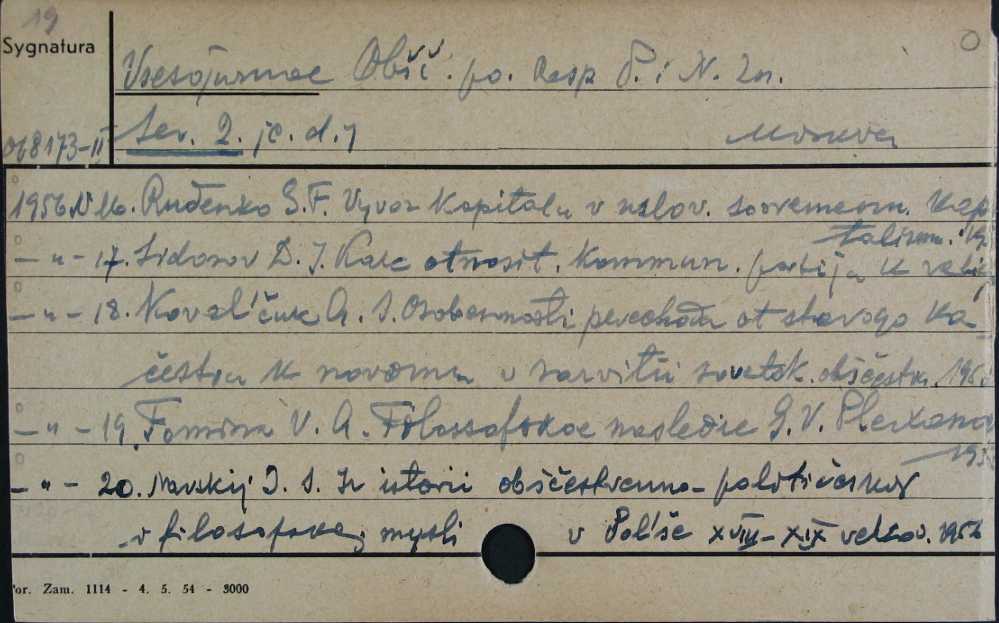 19
Sygnatura
068173-II
Vsesojuznoe Obšč. po. Rasp P. i N. Zn.
Ser. 2. je. d. 7
Moskva
0
1956 N 16. Rudenko G.F. Vyvoz kapitala v uslov. sovremenn. kap
talizma. 19
- " - 17. Sidorov D. I. Kak otnosit. kommun. partija k relig
- " - 18. Koval'čuk A. S. Osobennosti perechoda ot starogo ka
čestva k novomu v razvitii sovetsk. obščestva. 195
- " - 19. Fomina V. A. Filosofskoe nasledie G. V. Plexanov
195
- " - 20. Narskij I. S. Iz istorii obščestvenno-političeskoj
v filosofskoj mysli v Pol'še XVIII-XIX vekov. 1956
or. Zam. 1114 - 4. 5. 54 - 3000